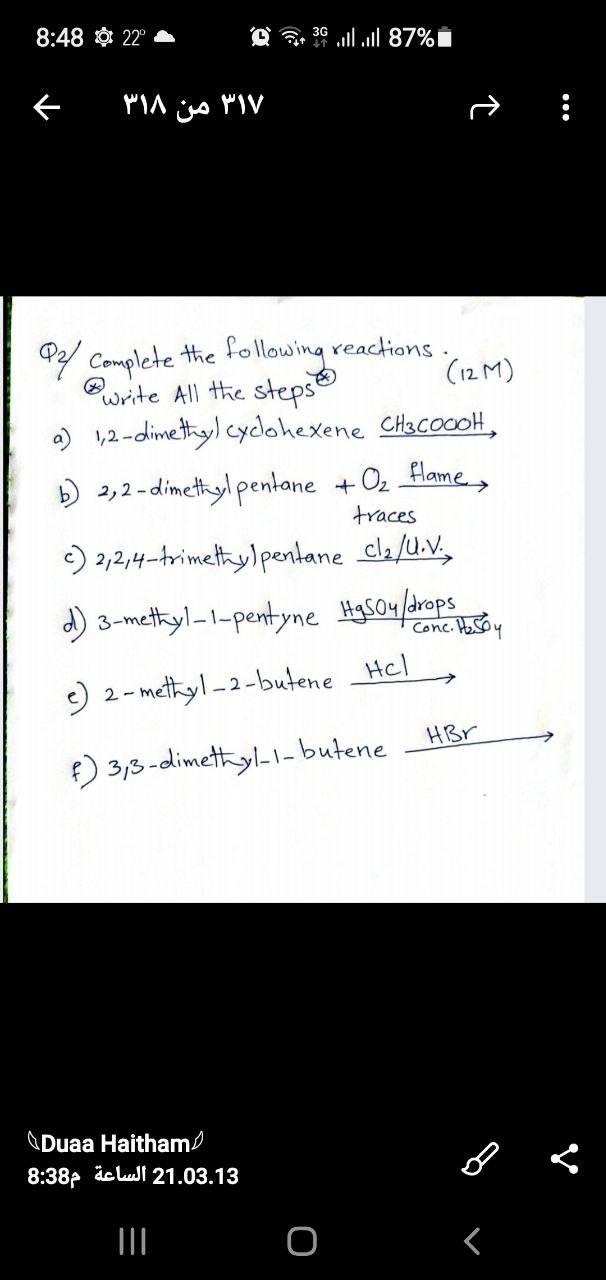 8:48 22° 3G 87%
٣١٧ من ٣١٨
Q2/ Complete the following reactions.
* write All the steps * (12 M)
a) 1,2-dimethyl cyclohexene CH3COOOH
b) 2,2-dimethylpentane + O2 flame
traces
c) 2,2,4-trimethylpentane Cl2/U.V.
d) 3-methyl-1-pentyne HgSO4/drops
Conc. H2SO4
e) 2-methyl-2-butene HCl
f) 3,3-dimethyl-1-butene HBr
Duaa Haitham
21.03.13 الساعة 8:38م